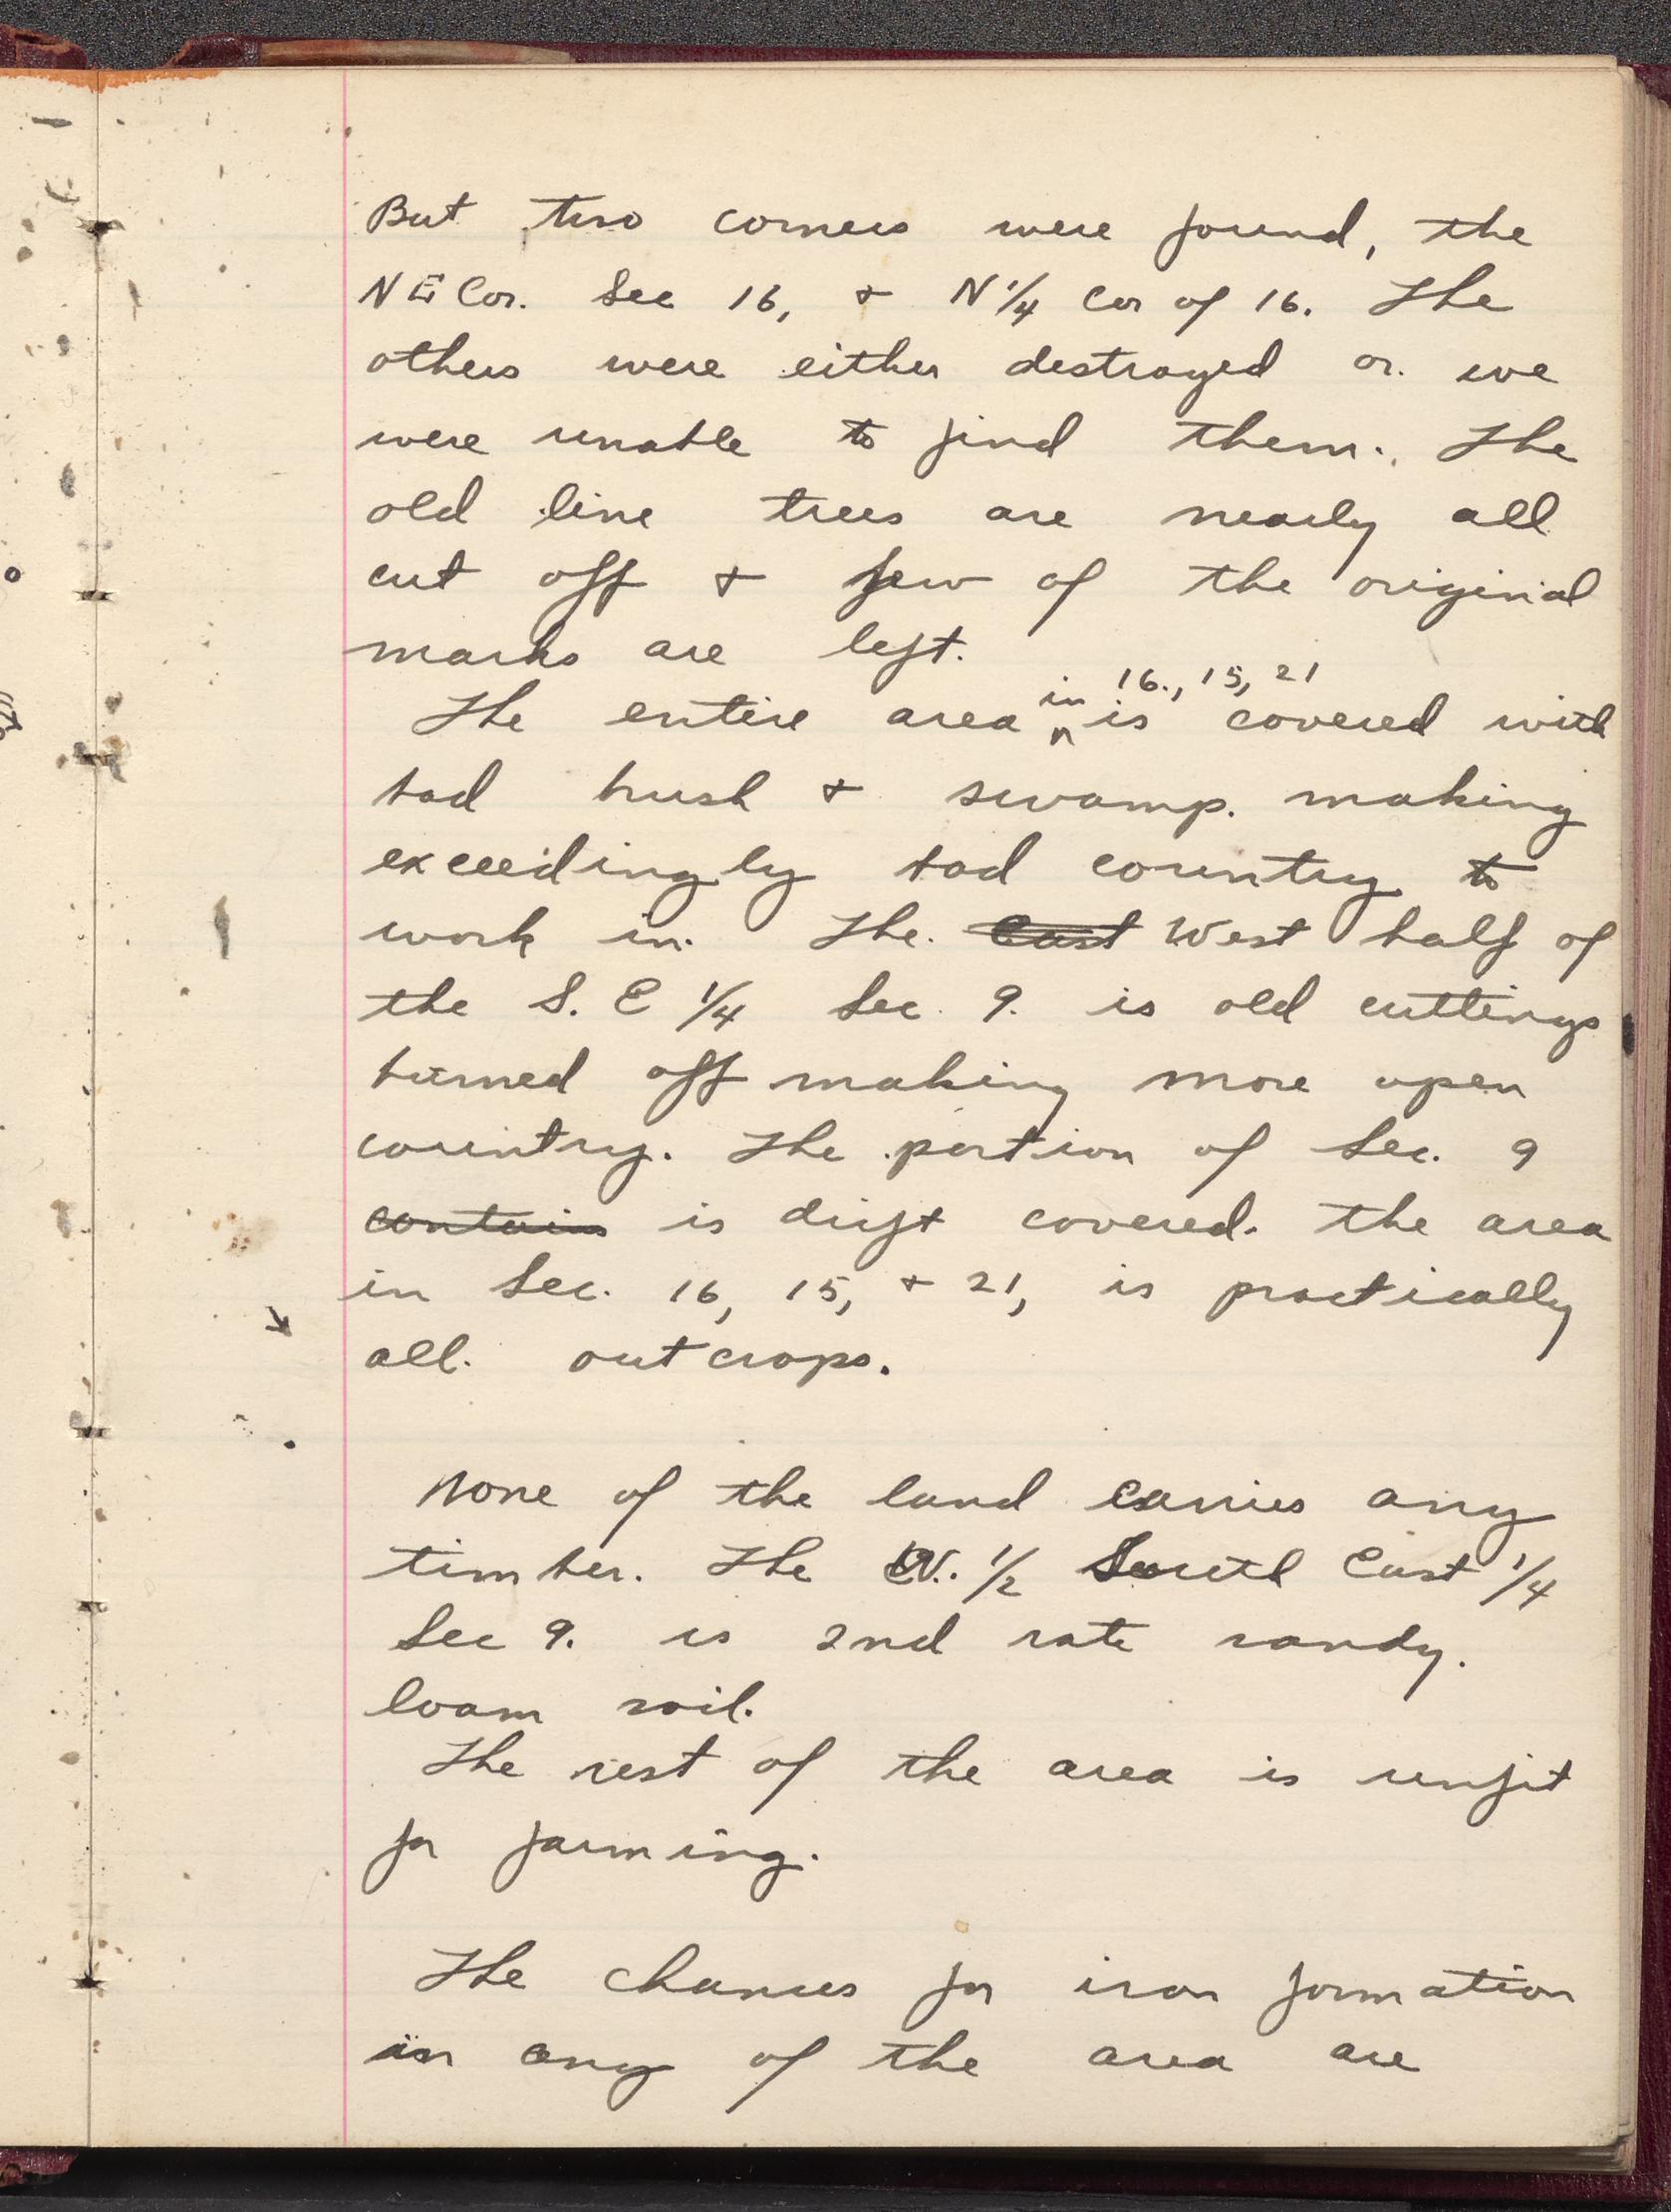 But two corners were found, the
NE Cor. Sec 16, + N 1/4 Cor of 16. The
others were either destroyed or we
were unable to find them. The
old line trees are nearly all
cut off + few of the original
marks are left.
The entire area in 16., 15, 21 is covered with
bad brush + swamp. making
exceedingly bad country to
work in. The. East West half of
the S. E 1/4 Sec. 9. is old cuttings
burned off making more open
country. The portion of Sec. 9
contains is drift covered. the area
in Sec. 16, 15, + 21, is practically
all. outcrops.
None of the land carries any
timber. The W. 1/2 South East 1/4
Sec 9. is 2nd rate sandy.
loam soil.
The rest of the area is unfit
for farming.
The chances for iron formation
in any of the area are